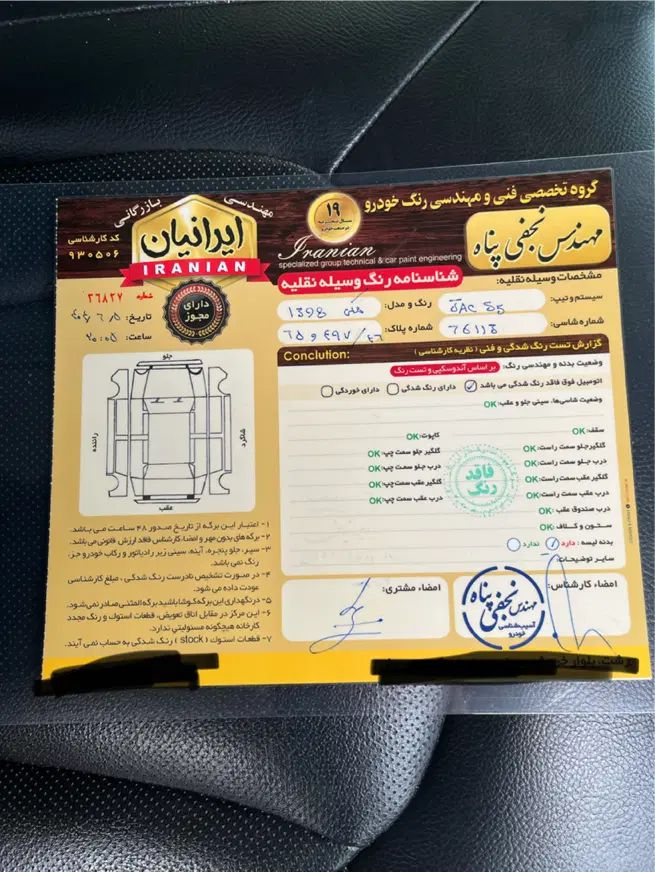 گروه تخصصی فنی و مهندسی رنگ خودرو
مهندس نجفی پناه
۱۹
سال تجربه
Iranian
specialized group technical & car paint engineering
مهندسی
بازرگانی
ایرانیان
IRANIAN
کد کارشناسی
۹۳۰۵۰۶
دارای
مجوز
شماره ۲۶۸۲۷
تاریخ:
ساعت:
شناسنامه رنگ وسیله نقلیه
مشخصات وسیله نقلیه:
سیستم و تیپ: JAC S5
رنگ و مدل: ۱۳۹۸
شماره شاسی:
شماره پلاک:
Conclution:
گزارش تست رنگ شدگی و فنی ( نظریه کارشناسی )
وضعیت بدنه و مهندسی رنگ: بر اساس آندوسکپی و تست رنگ
اتومبیل فوق فاقد رنگ شدگی می باشد
دارای رنگ شدگی
دارای خوردگی
وضعیت شاسی‌ها، سینی جلو و عقب: OK
سقف: OK
کاپوت: OK
گلگیر جلو سمت راست: OK
گلگیر جلو سمت چپ: OK
درب جلو سمت راست: OK
درب جلو سمت چپ: OK
گلگیر عقب سمت راست: OK
گلگیر عقب سمت چپ: OK
درب عقب سمت راست: OK
درب عقب سمت چپ: OK
درب صندوق عقب: OK
ستون و کلاف: OK
فاقد
رنگ
بدنه لیسه: دارد ندارد
سایر توضیحات:
امضاء کارشناس:
امضاء مشتری:
مهندس
نجفی پناه
آسیب‌شناسی
خودرو
جلو
راننده
شاگرد
عقب
۱- اعتبار این برگه از تاریخ صدور ۴۸ ساعت می باشد.
۲- برگه های بدون مهر و امضا کارشناس فاقد ارزش قانونی می‌باشد.
۳- سپر، جلو پنجره، آینه، سینی زیر رادیاتور و رکاب خودرو جزء
رنگ نمی باشد.
۴- در صورت تشخیص نادرست رنگ شدگی ، مبلغ کارشناسی
عودت داده می شود.
۵- درنگهداری این برگه کوشا باشید برگه المثنی صادر نمی‌شود.
۶- این مرکز در مقابل اتاق تعویض، قطعات استوک و رنگ مجدد
کارخانه هیچگونه مسئولیتی ندارد.
۷- قطعات استوک ( stock ) رنگ شدگی به حساب نمی آیند.